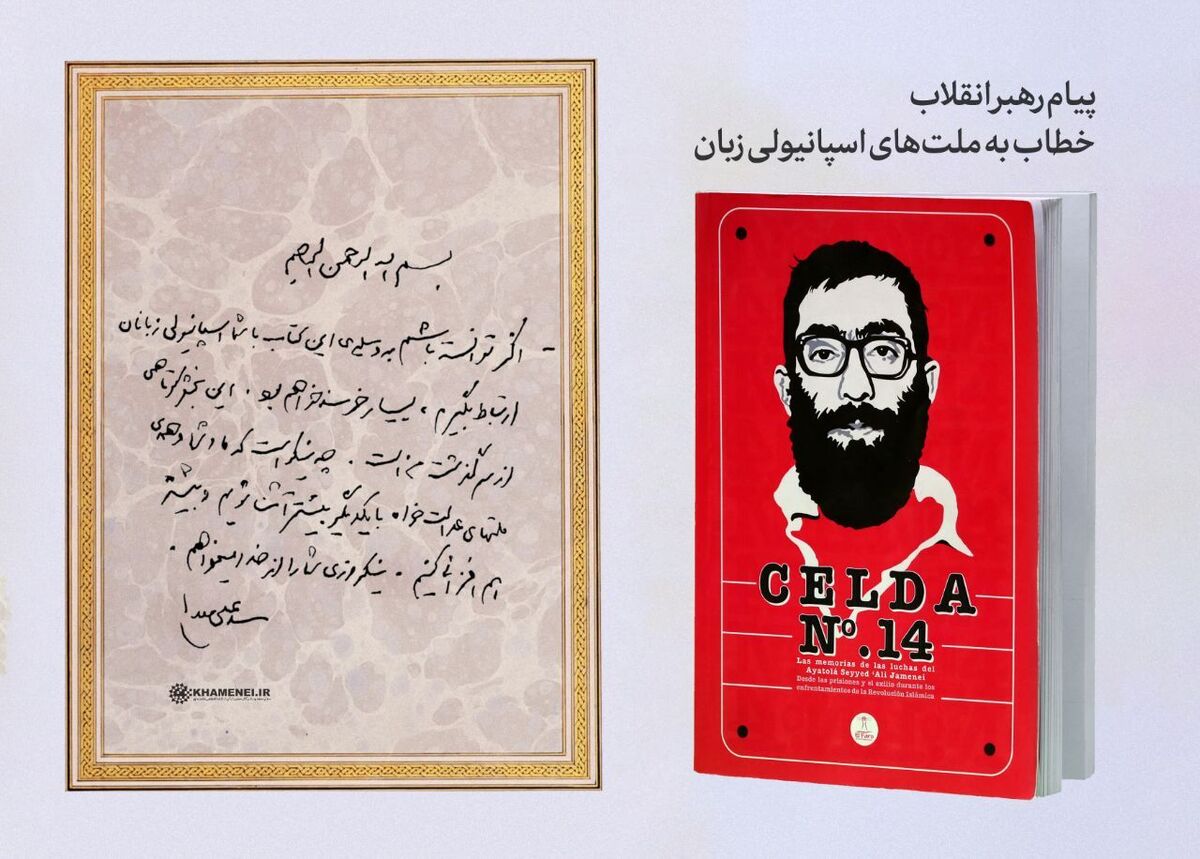 پیام رهبر انقلاب
خطاب به ملت‌های اسپانیولی زبان
بسم الله الرحمن الرحیم
- اگر توانسته باشم به وسیله‌ی این کتاب با شما اسپانیولی زبانان
ارتباط بگیرم، بسیار خرسند خواهم بود. این بخش کوتاهی
از سرگذشت من است. چه نیکو است که ما و شما و همه‌ی
ملتهای عدالت‌خواه با یکدیگر بیشتر آشنا شویم و بیشتر
هم افزائی کنیم. نیکروزی شما را از خدا میخواهم.
سید علی خامنه‌ای
KHAMENEI.IR
CELDA
Nº.14
Las memorias de las luchas del
Ayatolá Seyyed ‘Ali Jamenei
Desde las prisiones y el exilio durante los
enfrentamientos de la Revolución Islámica
El Faro